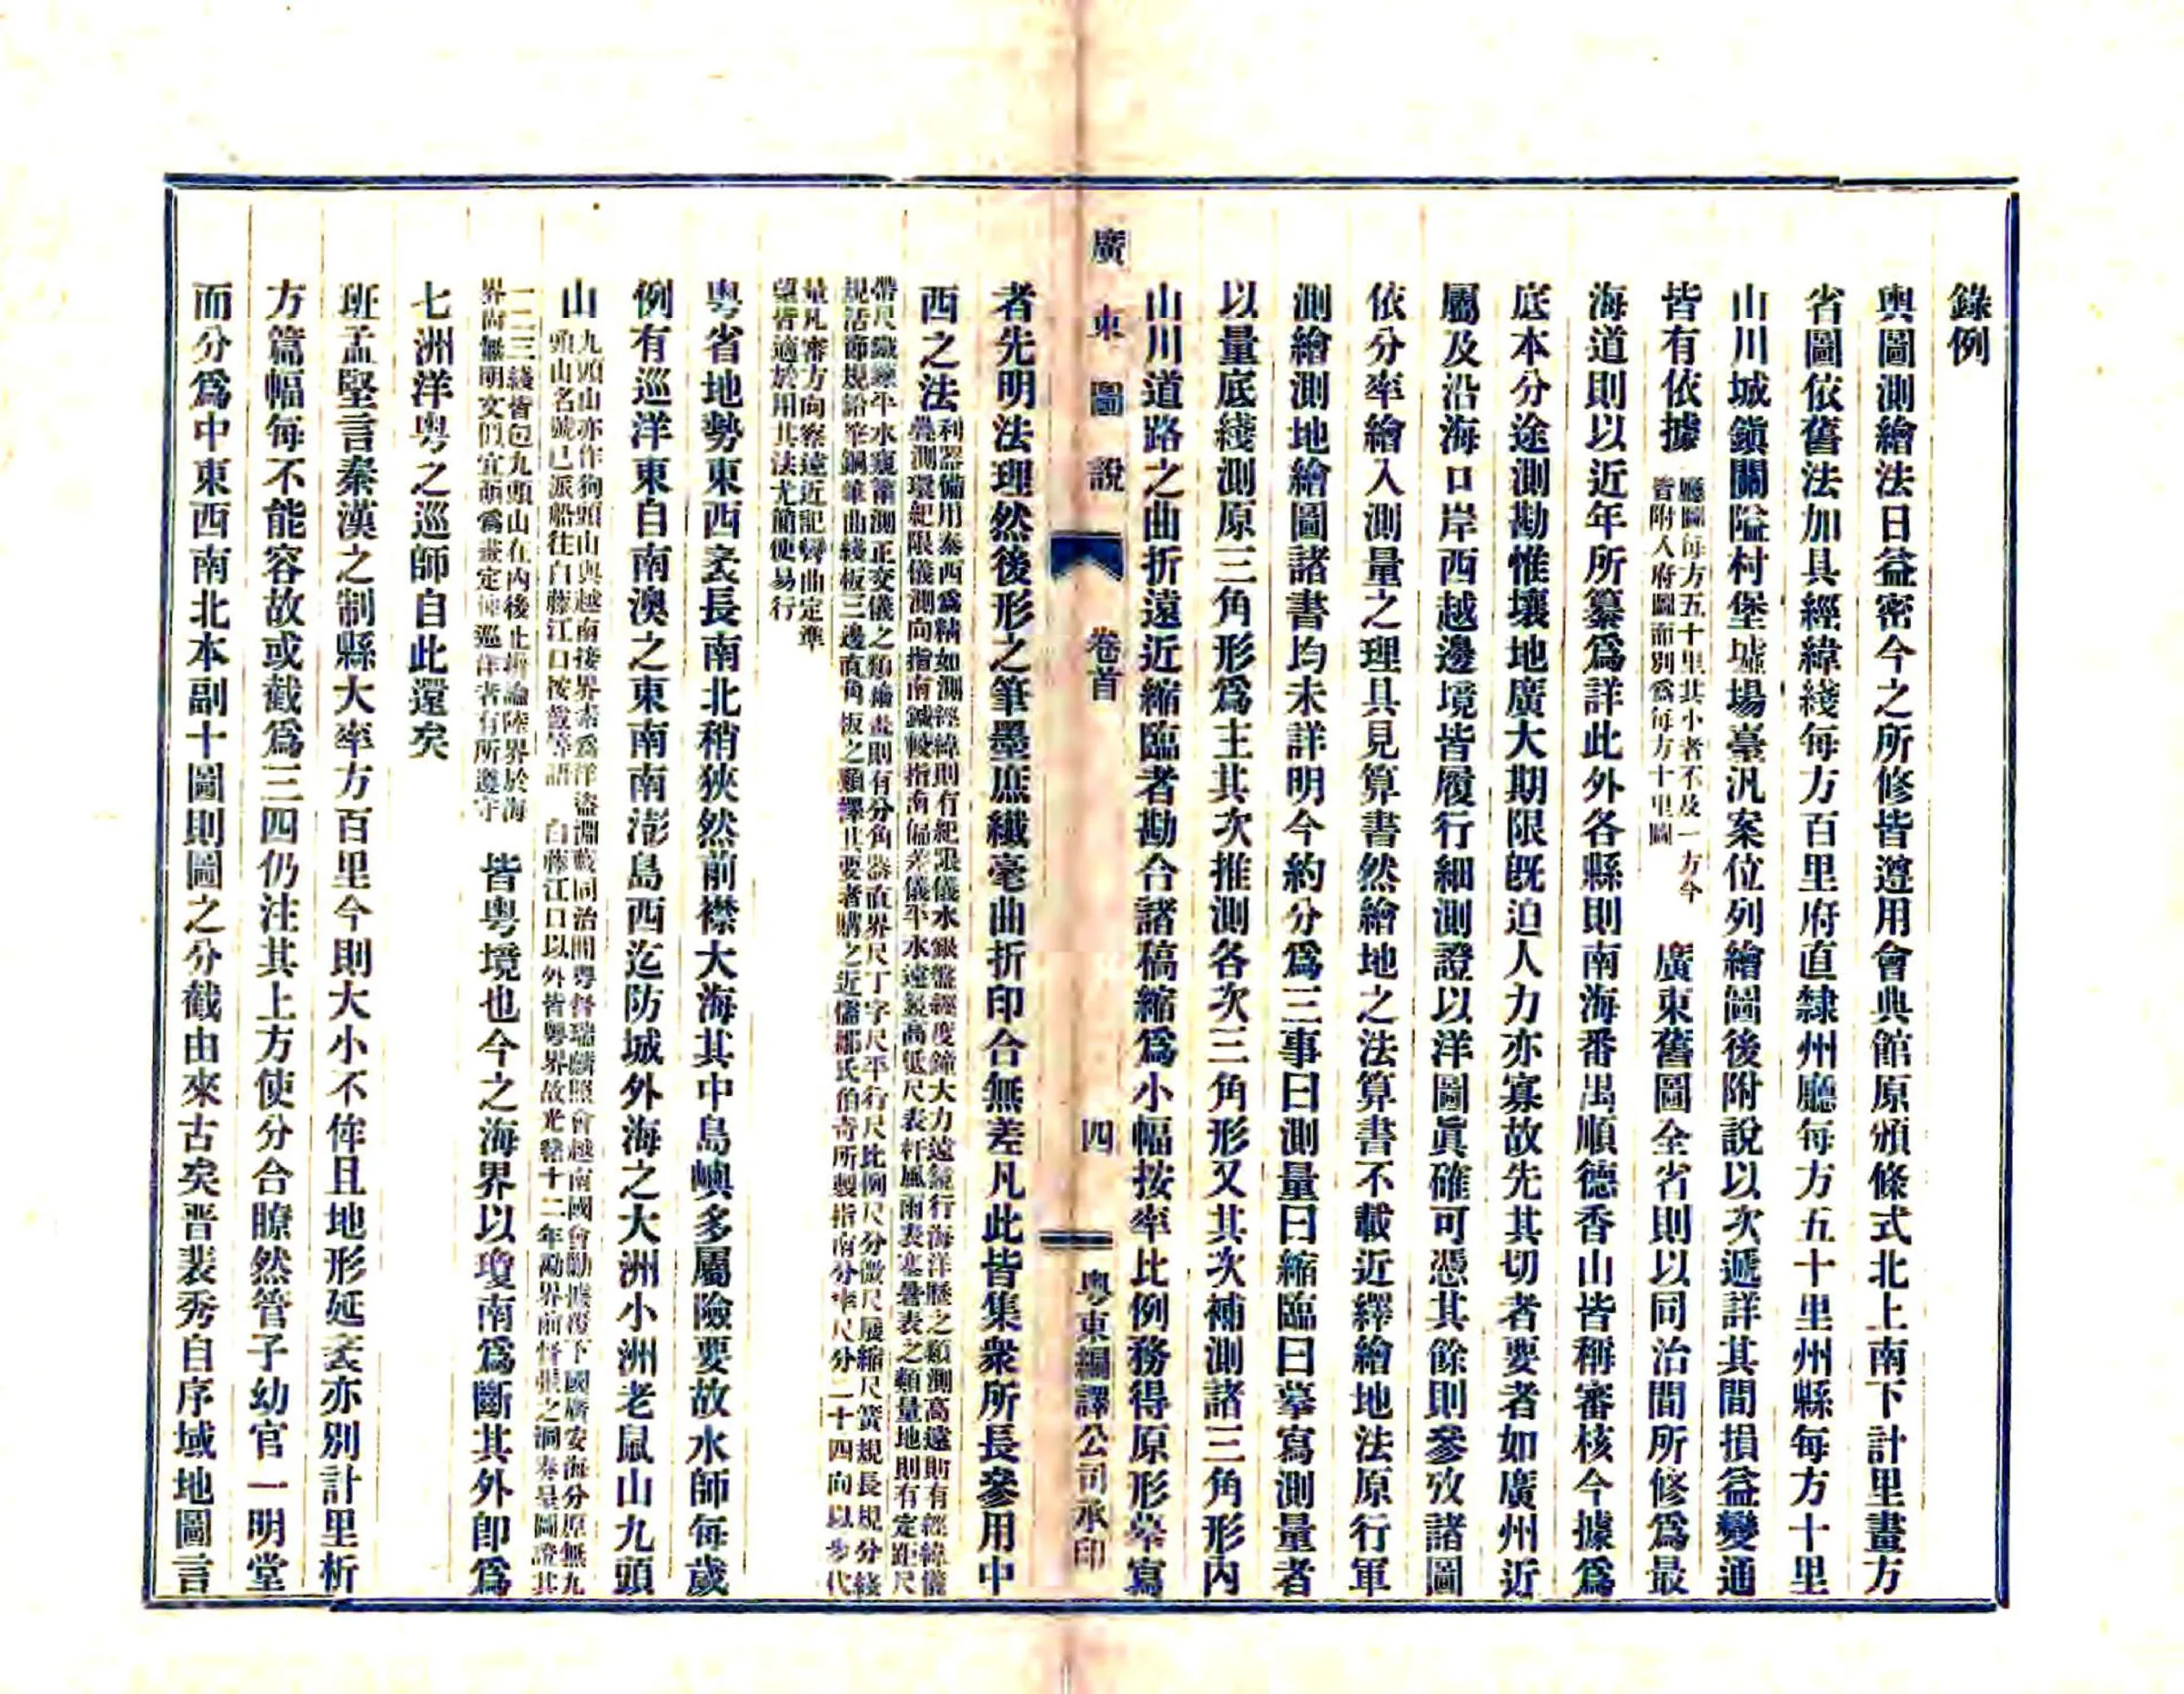 錄例
輿圖測繪法日益密今之所修皆遵用會典館原頒條式北上南下計里畫方
省圖依舊法加具經緯綫每方百里府直隸州廳每方五十里州縣每方十里
山川城鎮關隘村堡墟場臺汛案位列繪圖後附說以次遞詳其間損益變通
皆有依據
廳圖每方五十里其小者不及一方今
皆附入府圖而別爲每方十里圖
廣東舊圖全省則以同治間所修爲最
海道則以近年所纂爲詳此外各縣則南海番禺順德香山皆稱審核今據爲
底本分途測勘惟壤地廣大期限旣迫人力亦寡故先其切者要者如廣州近
屬及沿海口岸西越邊境皆履行細測證以洋圖眞確可憑其餘則參攷諸圖
依分率繪入測量之理具見算書然繪地之法算書不載近繹繪地法原行軍
測繪測地繪圖諸書均未詳明今約分爲三事曰測量曰縮臨曰摹寫測量者
以量底綫測原三角形爲主其次推測各次三角形又其次補測諸三角形內
山川道路之曲折遠近縮臨者勘合諸稿縮爲小幅按率比例務得原形摹寫
廣東圖說
卷首
四
粵東編譯公司承印
者先明法理然後形之筆墨庶纖毫曲折印合無差凡此皆集衆所長參用中
西之法
利器備用泰西爲精如測經緯則有紀限儀水銀盤經度鐘大力遠鏡行海洋歷之類測高遠則有經緯儀
疊測環紀限儀測向指南鍼較指南偏差儀平水遠鏡高低尺表杆風雨表寒暑表之類量地則有定距尺
帶尺鐵鍊平水窺筩測正交儀之類繪畫則有分角器直界尺丁字尺平行尺比例尺分微尺展縮尺簧規長規分綫
規活節規鉛筆鋼筆曲綫板三邊直角板之類擇其要者購之近儒鄒氏伯奇所製指南分率尺分二十四向以步代
量凡審方向察遠近記彎曲定準
望皆適於用其法尤簡便易行
粵省地勢東西袤長南北稍狹然前襟大海其中島嶼多屬險要故水師每歲
例有巡洋東自南澳之東南南澎島西迄防城外海之大洲小洲老鼠山九頭
山
九頭山亦作狗頭山與越南接界素爲洋盜淵藪同治間粵督瑞麟照會越南國會勦據覆下國廣安海分原無九
頭山名號已派船往白藤江口按截等語 白藤江口以外皆粵界故光緖十二年勘界前督張之洞奏呈圖證其
一二三綫皆包九頭山在內後止辨論陸界於海
界尙無明文似宜商爲畫定俾巡洋者有所遵守
皆粵境也今之海界以瓊南爲斷其外卽爲
七洲洋粵之巡師自此還矣
班孟堅言秦漢之制縣大率方百里今則大小不侔且地形延袤亦別計里析
方篇幅每不能容故或截爲三四仍注其上方使分合瞭然管子幼官一明堂
而分爲中東西南北本副十圖則圖之分截由來古矣晉裴秀自序域地圖言